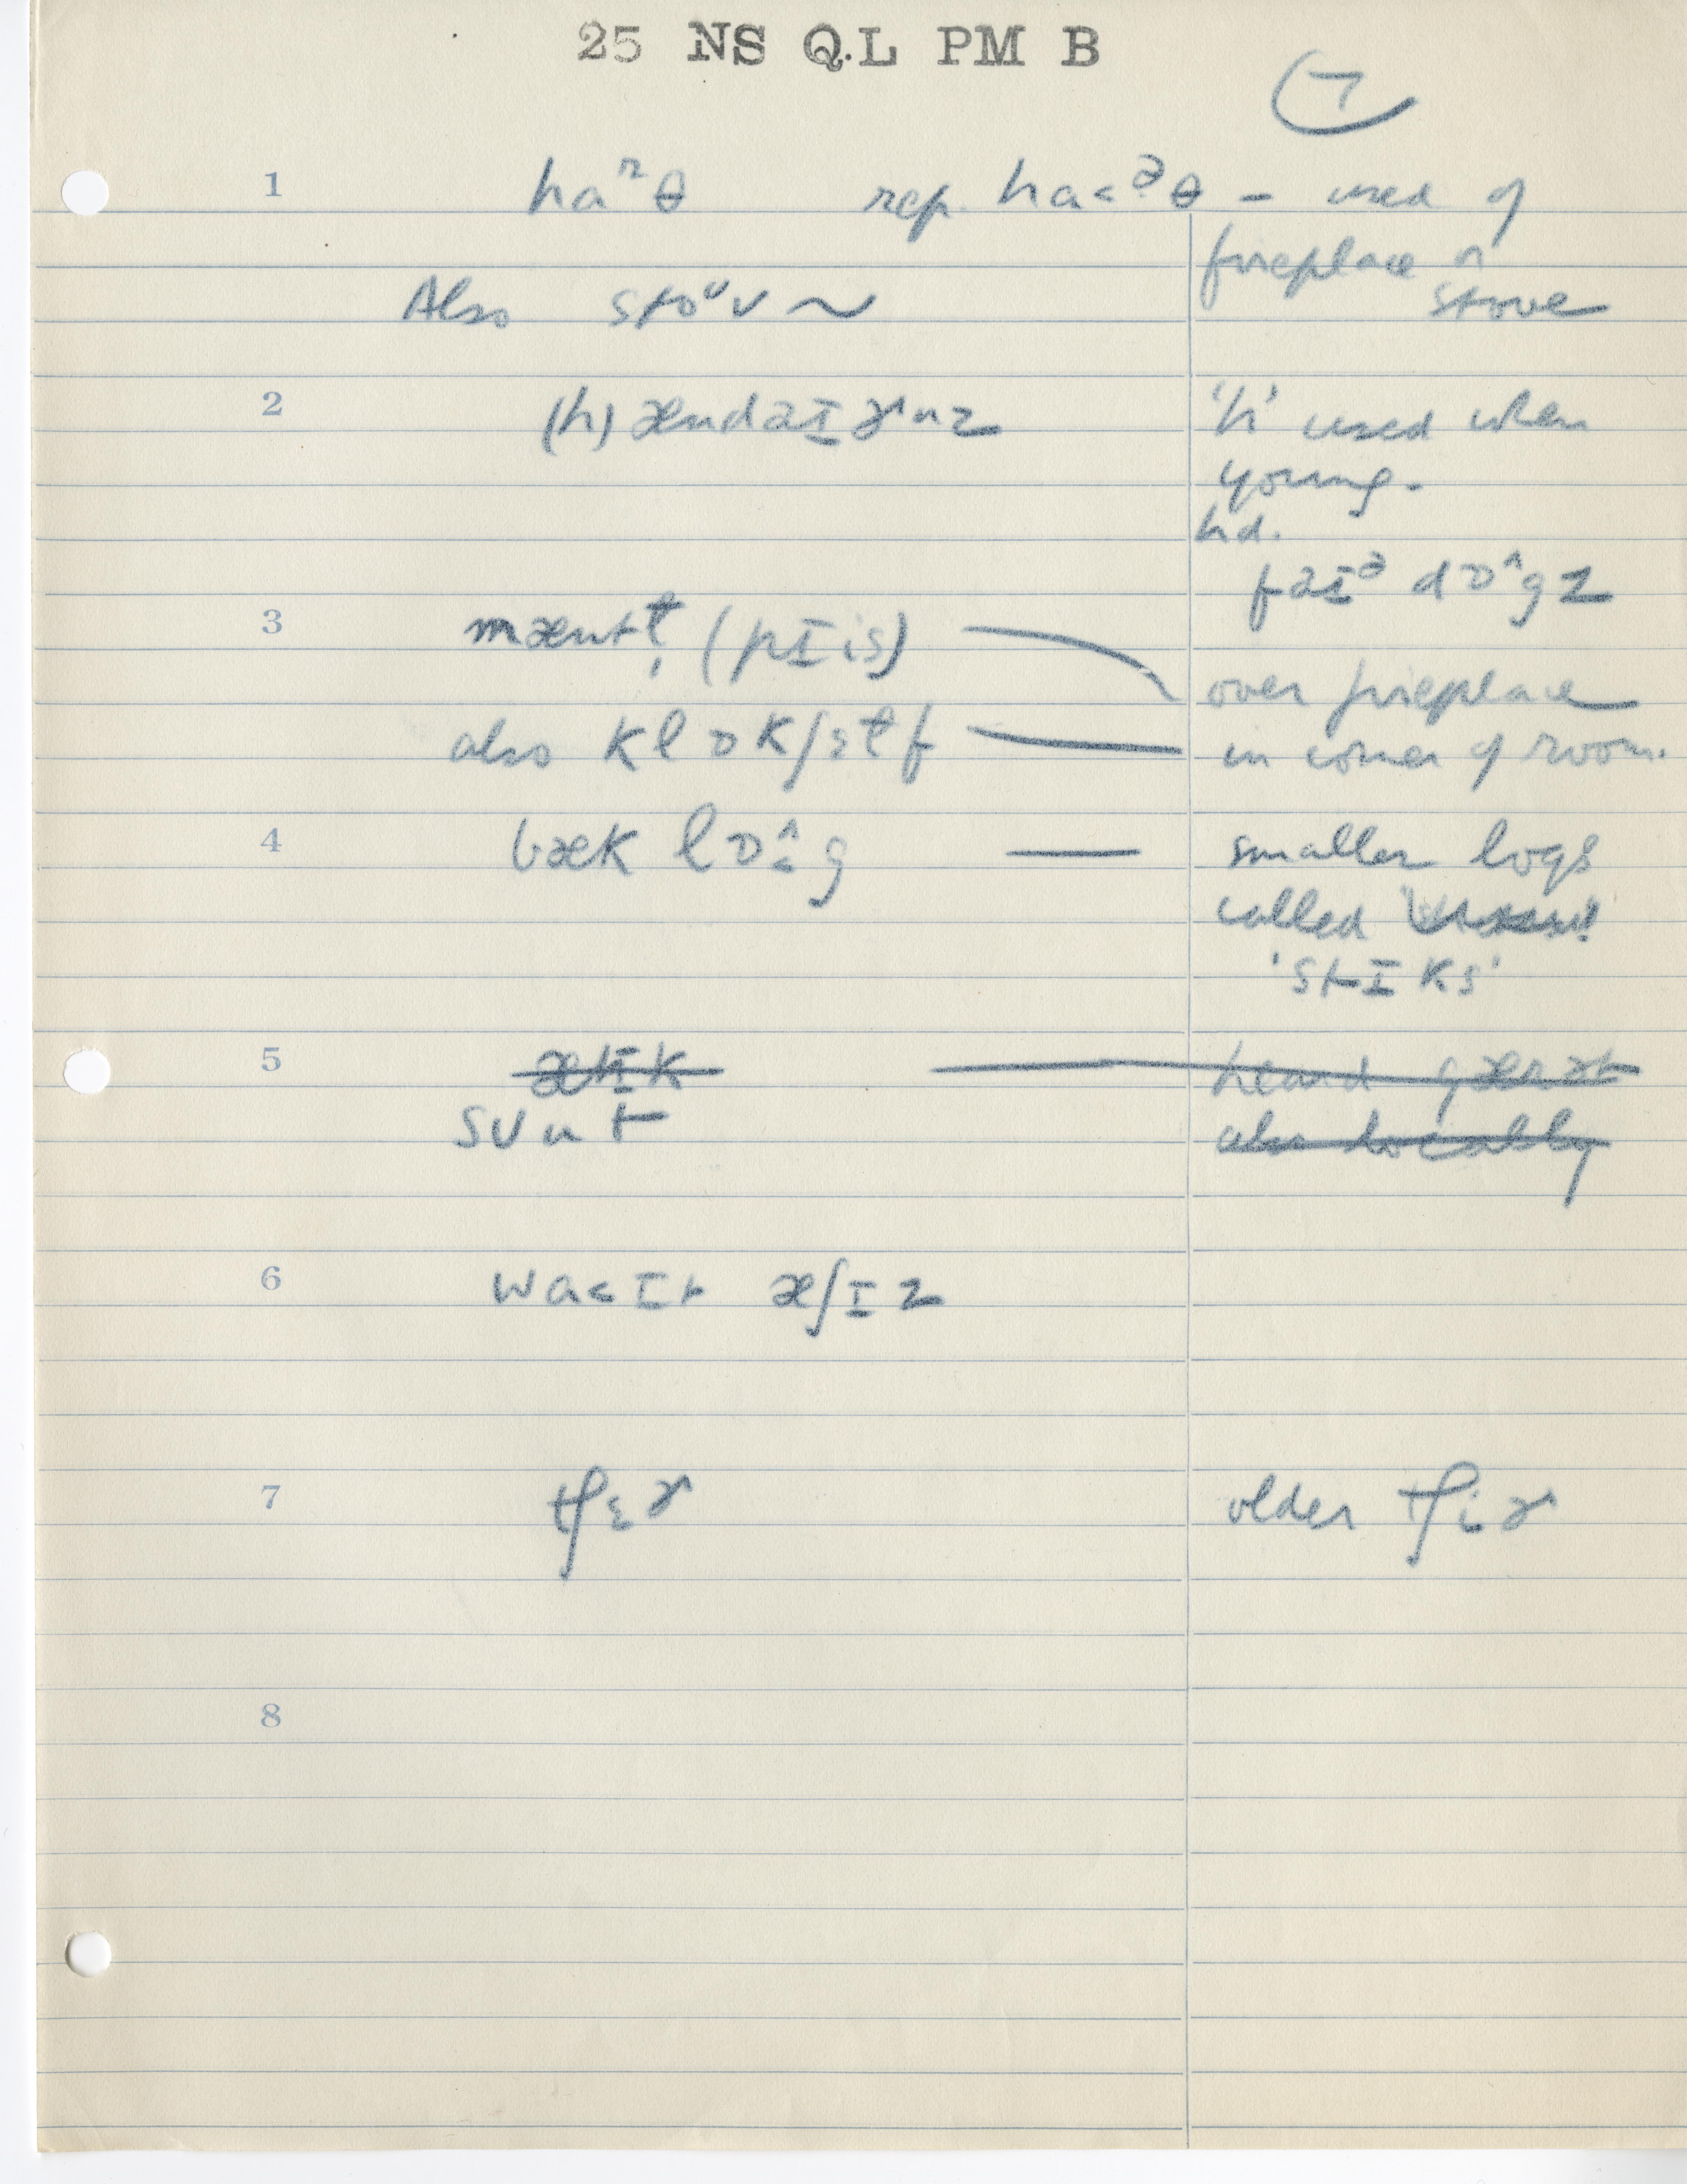 25 NS QL PM B
7
1 haʳθ rep. ha<ᵊθ – used of
fireplace or
Also stoᵘv ~ stove
2 (h)ændaɪɚnz 'h' used when
young.
hd.
faɪᵊ dɒ^gz
3 mæntɫ̩ (pɪis) over fireplace
also klɒk ʃɛɫf in corner of room.
4 bæk lɒ^g — smaller logs
called
'stɪks'
5 ætɪk heard gærət
sʊt also locally
6 wa<ɪt æʃɪz
7 tʃɛɚ older tʃiɚ
8